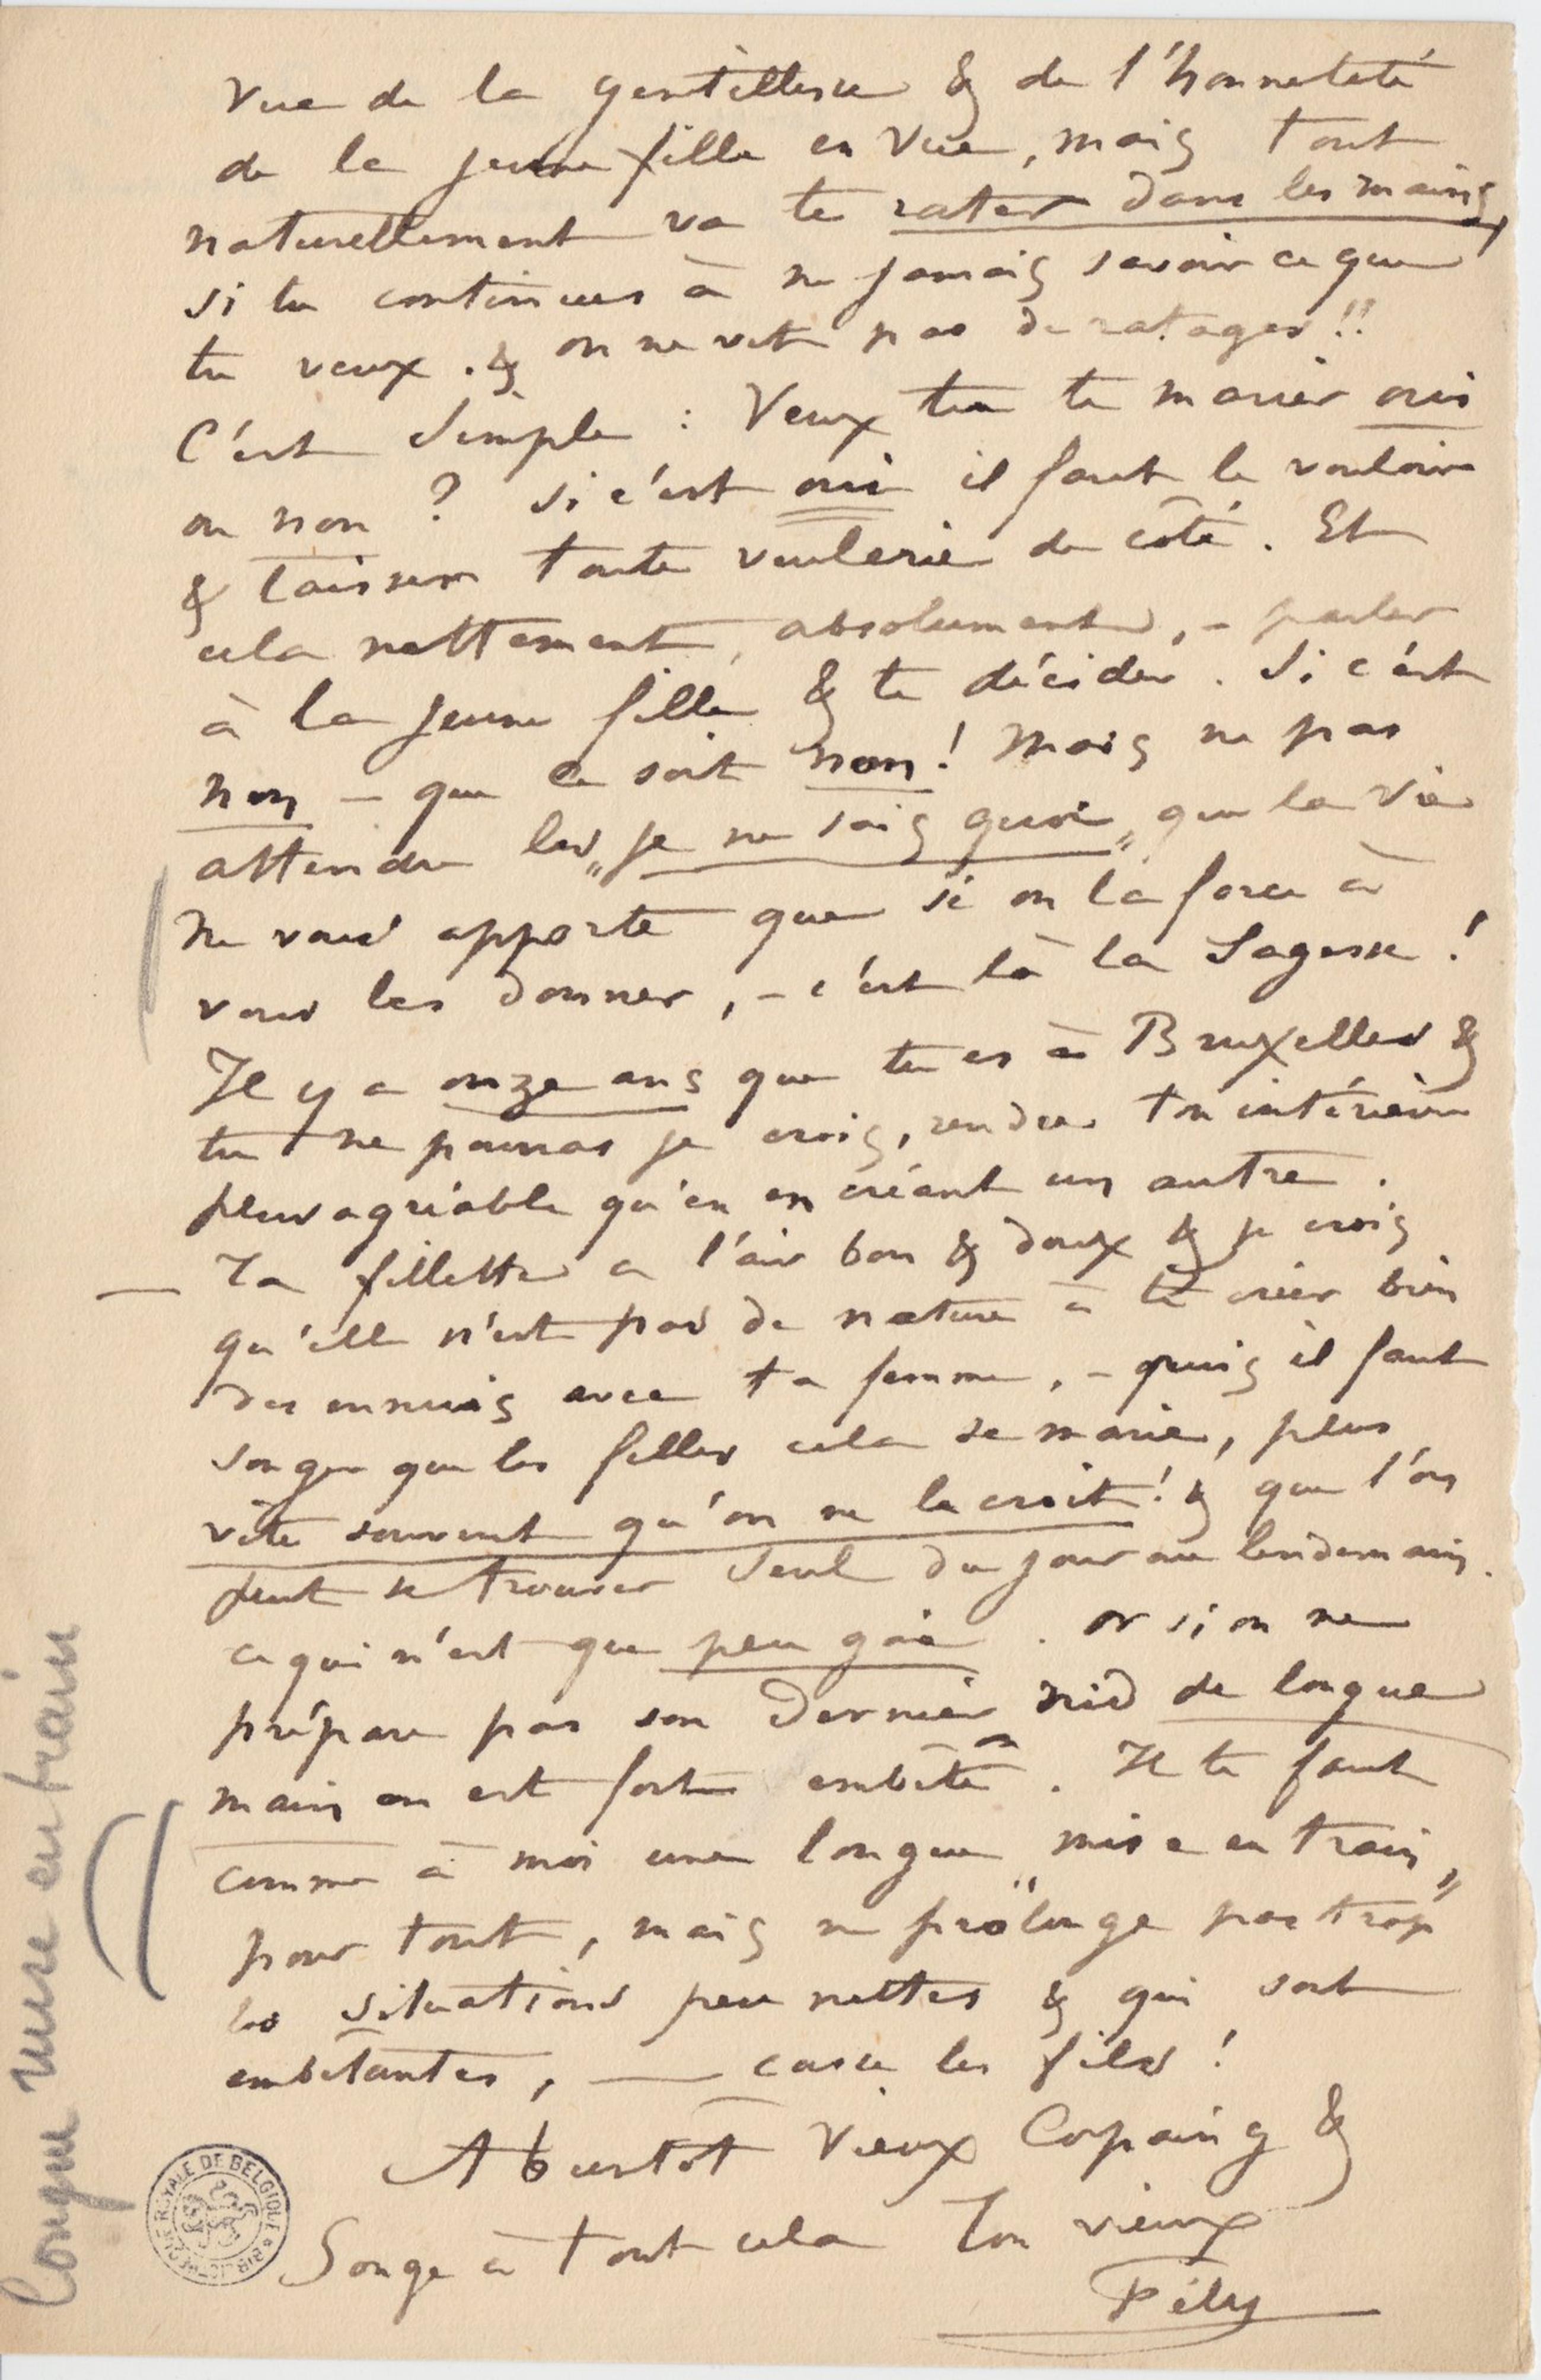 vue de la gentillesse & de l'honneteté
de la jeune fille en vue, mais tout
naturellement va te rater dans les mains,
si tu continues à ne jamais savoir ce que
tu veux. & on ne vit pas de ratages !!
C'est simple : Veux tu te marier oui
ou non ? si c'est oui il faut le vouloir
& laisser toute veulerie de côté. Et
cela nettement, absolument, – parler
à la jeune fille & te décider. Si c'est
non – que ce soit non ! Mais ne pas
attendre les „je ne sais quoi„ que la vie
ne vous apporte que si on la force à
vous les donner, – c'est là la Sagesse !
Il y a onze ans que tu es à Bruxelles &
tu ne pourras je crois, rendre ton intérieur
plus agréable qu'en en créant un autre.
— Ta fillette a l'air bon & doux & je crois
qu'elle n'est pas de nature à te créer bien
des ennuis avec ta femme, – puis il faut
songer que les filles cela se marie, plus
vite souvent qu'on ne le croit ! & que l'on
peut se trouver seul du jour au lendemain.
ce qui n'est que peu gai. or si on ne
prépare pas son dernier nid de longue
main on est fort embêté. Il te faut
comme à moi une longue „mise en train„
pour tout, mais ne prolonge pas trop
les situations peu nettes & qui sont
embêtantes, — casse les fils !
A bientôt vieux Copaing &
Songe à tout cela Ton vieux
Fély
Longue mise en train
BIBLIOTHEQUE ROYALE DE BELGIQUE